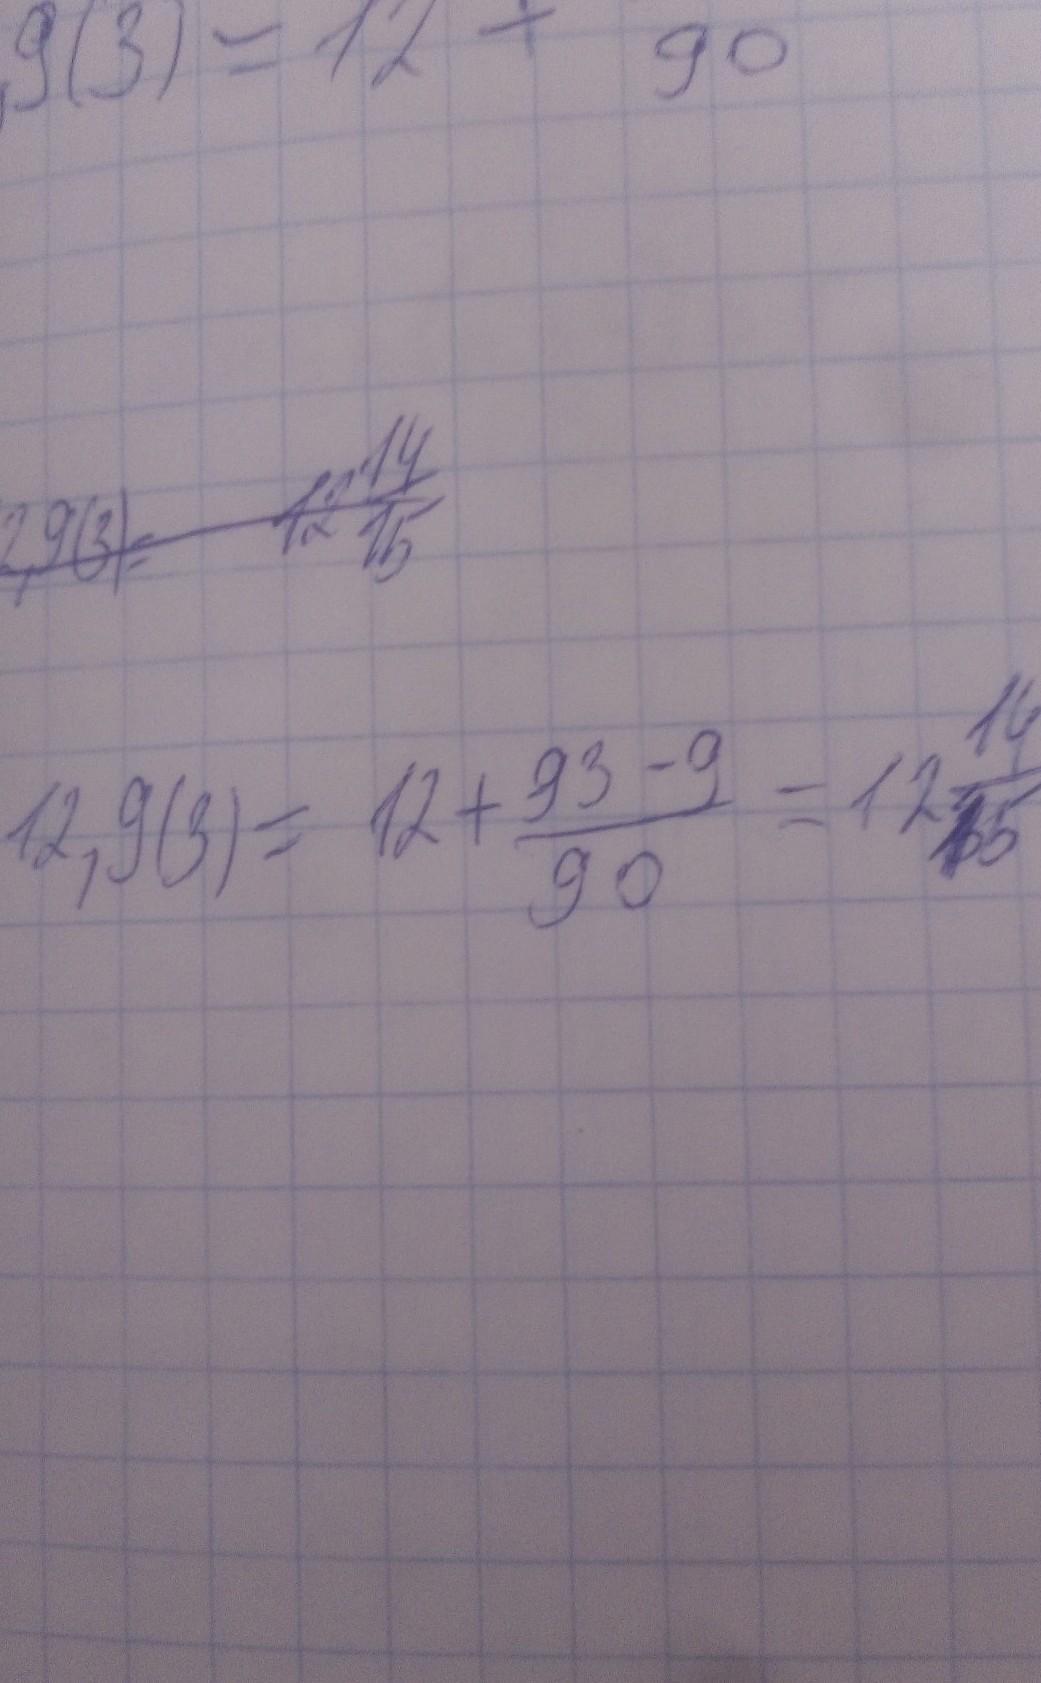 ,9(3) = 12 + 90
2,9(3)= 12 14/15
12,9(3)= 12+ 93-9/90 = 12 14/15